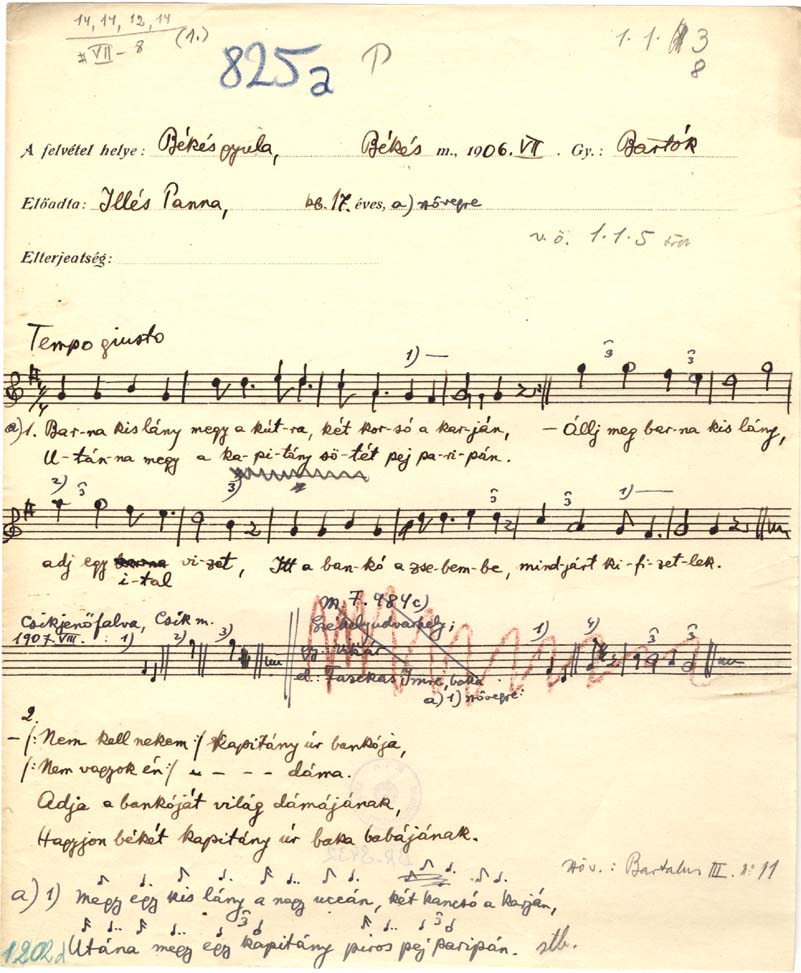 14, 14, 12, 14 (1.)
VII - 8
1.1. 3
8
825a
A felvétel helye: Békésgyula, Békés m., 1906. VII. Gy.: Bartók
Előadta: Illés Panna, kb. 17. éves, a) növegre
v.ö. 1.1.5
Elterjeatség:
Tempo giusto
1)
3 3
a) 1. Bar-na kis lány megy a kút-ra, két kor-só a kar-ján, - Állj meg bar-na kis lány,
U-tán-na megy a ka-pi-tány sö-tét pej pa-ri-pán.
2) 3 3) 3 3 1)
adj egy vi-zet, Itt a ban-kó a zse-bem-be, mind-járt ki-fi-zet-lek.
i-tal
Csikjenőfalva, Csík m.
1907. VIII. : 1) 2) 3)
M. F. 984c)
Székelyudvarhely;
gy. Vikár
el.: Fazekas Imre, baka
a) 1) növegre:
1) 4) 3 3
2.
- /: Nem kell nekem :/ kapitány úr bankója,
/: Nem vagyok én :/ - - - dáma.
Adja a bankóját világ dámájának,
Hagyjon békét kapitány úr baka babájának.
Növ.: Bartalus III. No 11
a) 1) Megy egy kis lány a nagy uccán, két kancsó a karján,
Utána megy egy kapitány piros pej paripán. stb.
1202d